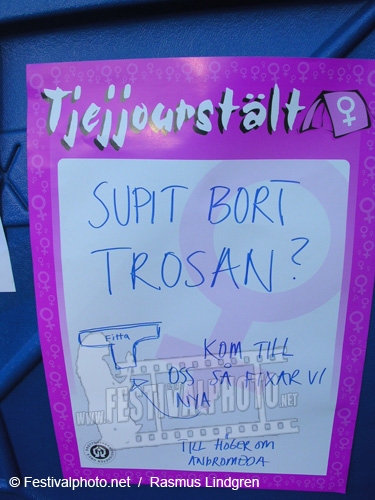 Tjejjourstält
SUPIT BORT
TROSAN?
Eitta
KOM TILL
OSS SÅ FIXAR VI
NYA
WWW.FESTIVALPHOTO.NET
TILL HÖGER OM
ANDROMEDA
© Festivalphoto.net / Rasmus Lindgren